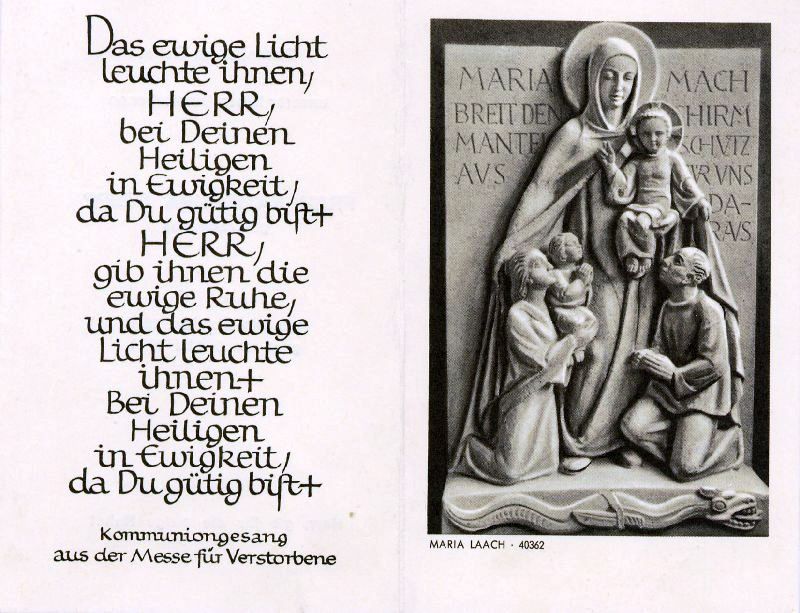 Das ewige Licht
leuchte ihnen,
HERR,
bei Deinen
Heiligen
in Ewigkeit,
da Du gütig bist+
HERR,
gib ihnen die
ewige Ruhe,
und das ewige
Licht leuchte
ihnen+
Bei Deinen
Heiligen
in Ewigkeit,
da Du gütig bist+
Kommuniongesang
aus der Messe für Verstorbene
MARIA MACH
BREIT DEN SCHIRM
MANTEL SCHVTZ
AVS FVR VNS
DA-
RAVS
MARIA LAACH · 40362